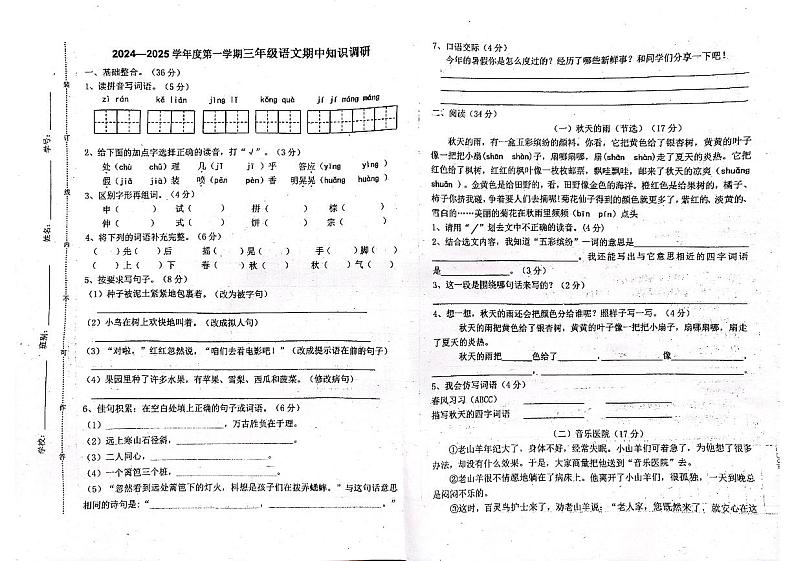 2024—2025 学年度第一学期三年级语文期中知识调研
一、基础整合。（36 分）
1、读拼音写词语。（5 分）
zì rán kě lián jìng lǐ
2、给下面的加点字选择正确的读音，打“√”。（3 分）
处（chù chǔ）理 几（jī jǐ）乎 答应（yīng yìng ）
假（jiǎ jià）装 喷（pēn pèn）香
3、区别字形再组词。（4 分）
申（ ） 试（ ） 拼（ ） 棕（ ）
伸（ ） 式（ ） 饼（ ） 宗（ ）
4、将下列的词语补充完整。（6 分）
（ ）先（ ）后 摇（ ）晃（ ） 手（ ）脚（ ）
（ ）上（ ）下 春（ ）秋（ ） 秋（ ）气（ ）
5、按要求写句子。（8 分）
（1）种子被泥土紧紧地包裹着。（改为被字句）
（2）小鸟在树上欢快地叫着。（改成拟人句）
（3）“对啦，”红红忽然说，“咱们去看电影吧！”（改成提示语在前的句子）
（4）果园里种了许多水果，有苹果、雪梨、西瓜和蔬菜。（修改病句）
6、佳句积累：在空白处填上正确的句子或词语。（6 分）
（1） ，万古胜负在于理。
（2）远上寒山石径斜， 。
（3）二人同心， 。
（4）一个篱笆三个桩， 。
（5）“忽然看到远处篱笆下的灯火，料想是孩子们在拨弄蟋蟀。”与这句话意思
相同的诗句是：“ ， 。”
学号：
姓名：
班别：
学校：
7、口语交际（4 分）
今年的暑假你是怎么度过的？经历了哪些新鲜事？和同学们分享一下吧！
二、阅读（34 分）
（一）秋天的雨（节选）（17 分）
秋天的雨，有一盒五彩缤纷的颜料。你看，它把黄色给了银杏树，黄黄的叶子
像一把把小扇(shān shàn)子，扇哪扇哪，扇(shān shàn)走了夏天的炎热。它把
红色给了枫树，红红的枫叶像一枚枚邮票，飘哇飘哇，邮来了秋天的凉爽（shuāng
shuǎng ）。金黄色是给田野的，看，田野像金色的海洋。橙红色是给果树的，橘子、
柿子你挤我碰，争着要人们去摘呢！菊花仙子得到的颜色就更多了，紫红的、淡黄的、
雪白的……美丽的菊花在秋雨里频频（bīn pín）点头
1、请用“/”划去文中不正确的读音。（4 分）
2、结合选文内容，我知道“五彩缤纷”一词的意思是
。我还能写出与它意思相近的四字词语
是 。（3 分）
3、这一段是围绕哪句话来写的？（2 分）
4、想一想，秋天的雨还会把颜分给谁呢？照样子写一写。（4 分）
秋天的雨把黄色给了银杏树，黄黄的叶子像一把把小扇子，扇哪扇哪，扇走
了夏天的炎热。
秋天的雨把 色给了 ， 像 ，
5、我会仿写词语（4 分）
春风习习（ABCC）
描写秋天的四字词语
（二）音乐医院（17 分）
①老山羊年纪大了，身体不好，经常失眠。小山羊们可着急了，为他想了很多
办法，却没有什么效果。于是，大家商量把他送到“音乐医院”去。
②老山羊很不情愿地躺在了病床上。他离开了小山羊们，很孤独，一天到晚总
是闷闷不乐的。
③这时，百灵鸟护士来了，劝老山羊说：“老人家，您既然来了，就安心在这